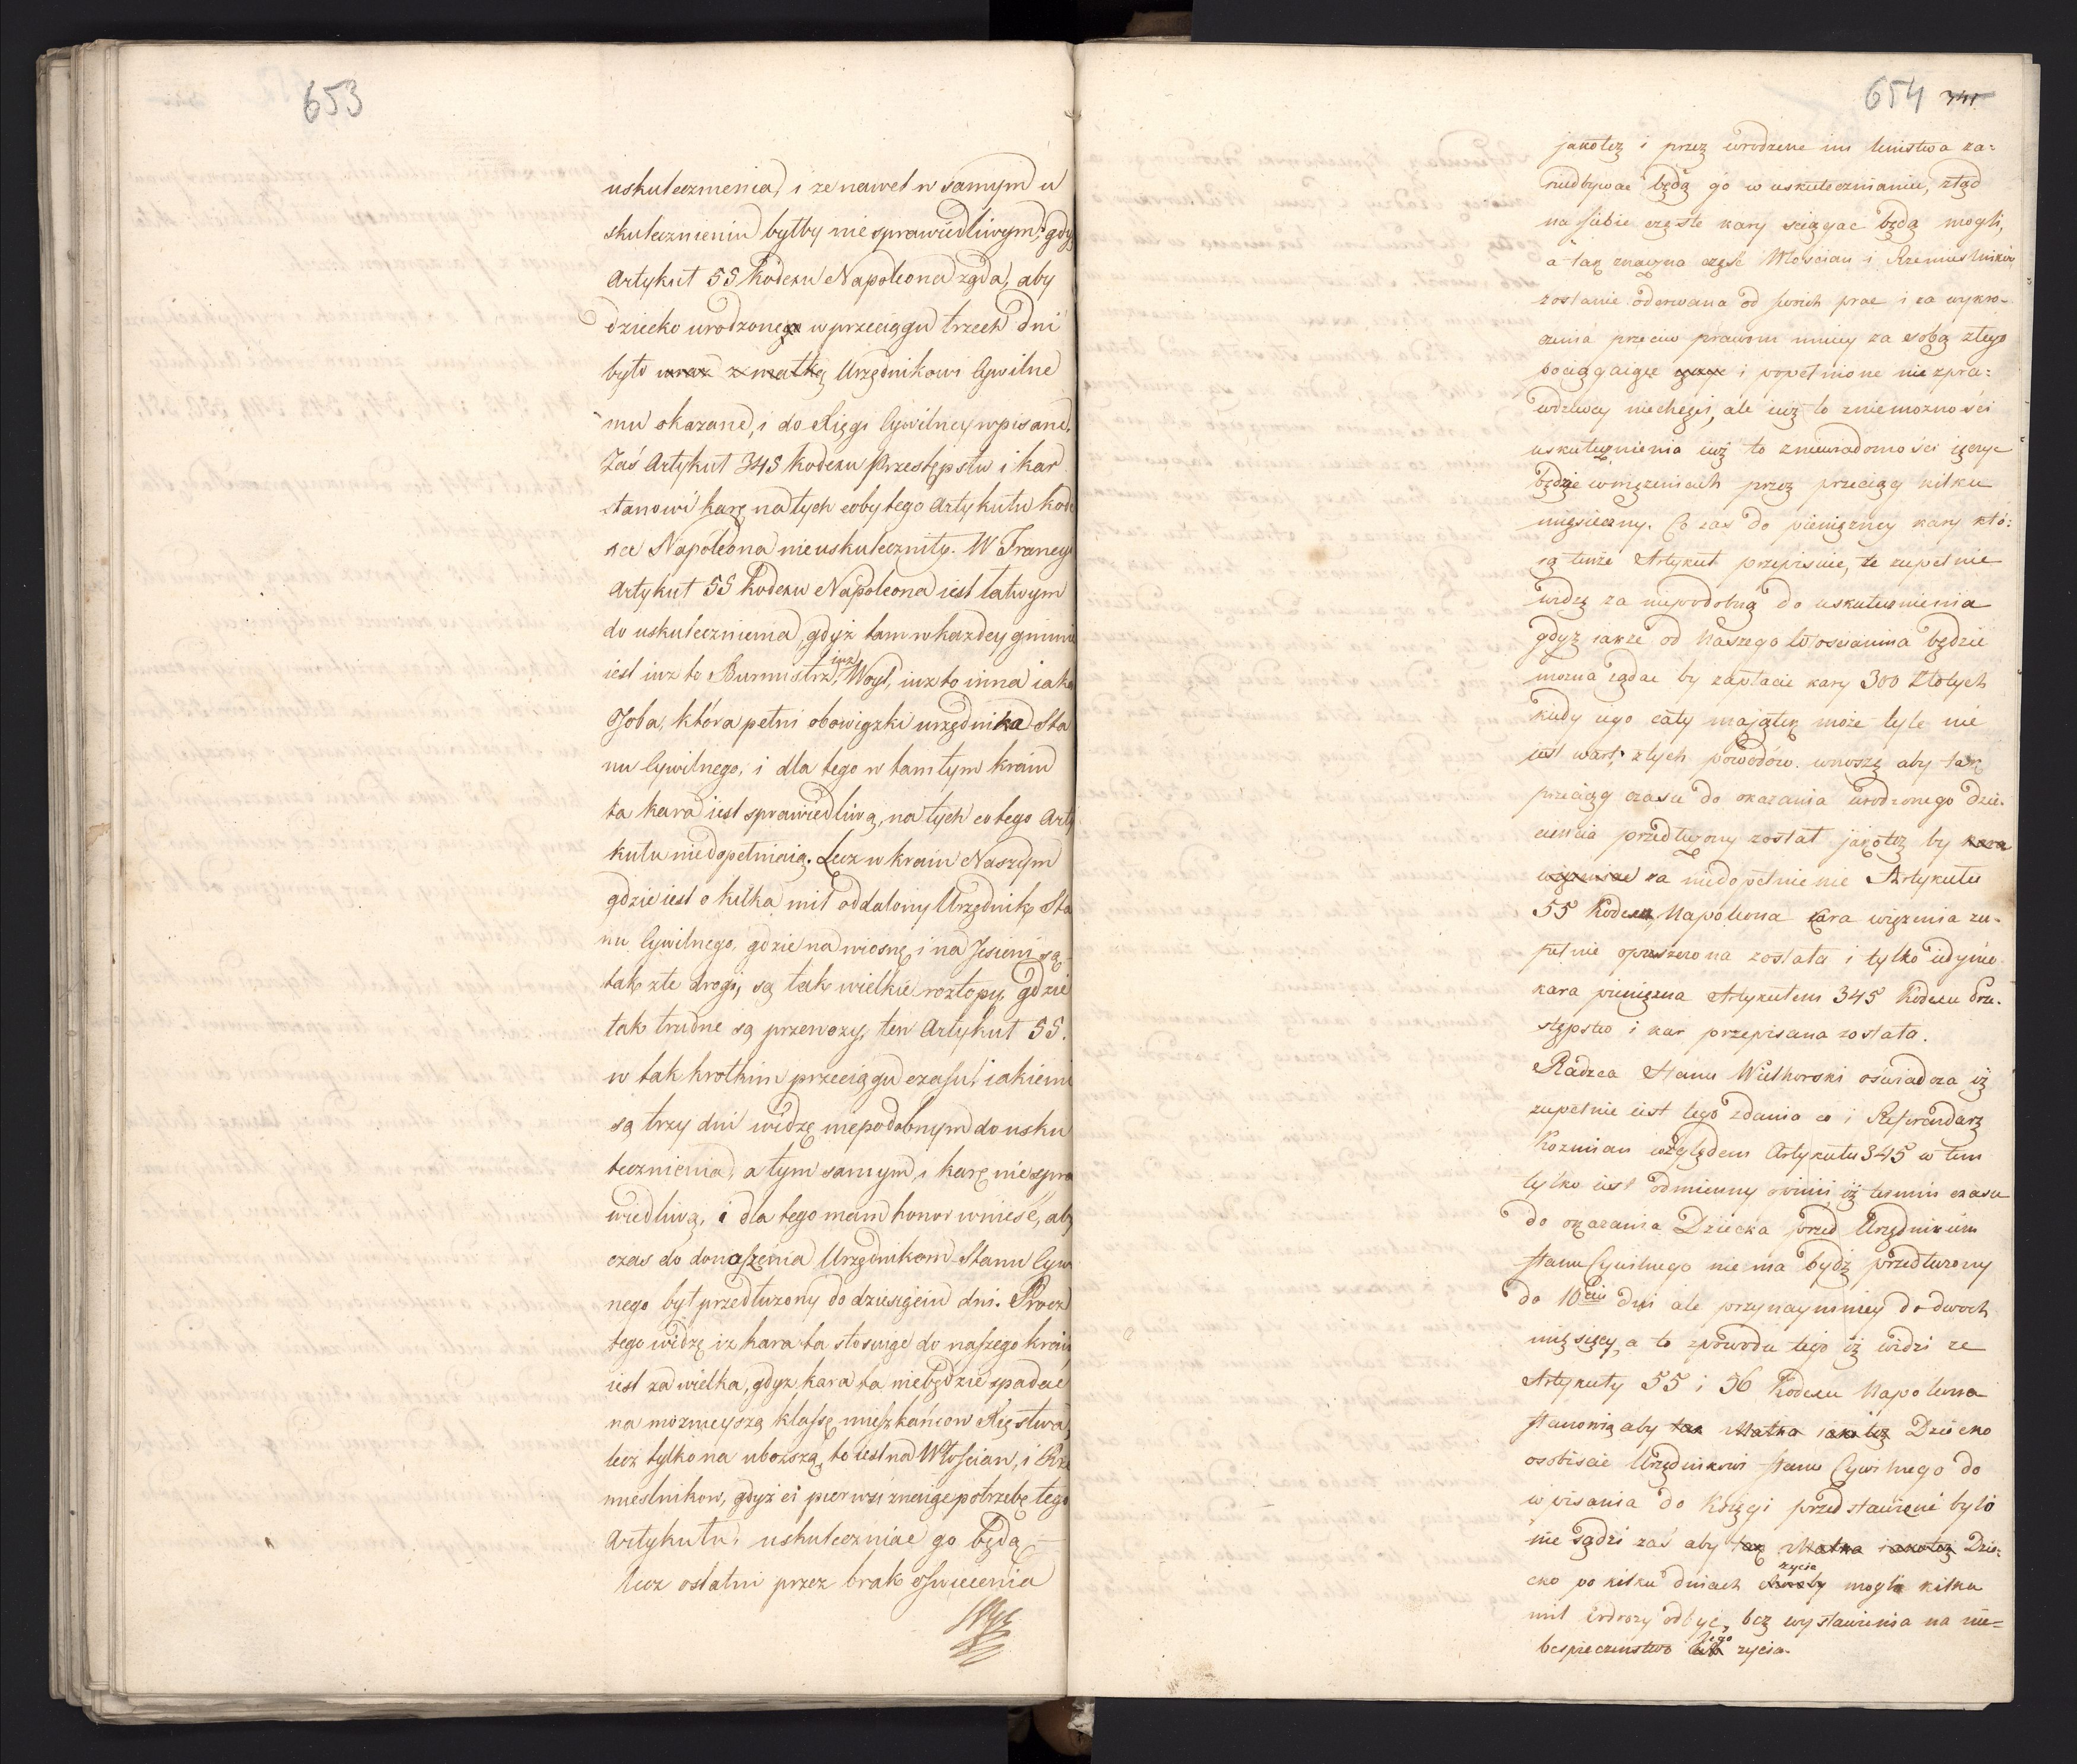 653
uskutecznienia, i ze nawet w samym u
skutecznieniu byłby niesprawiedliwym; gdy
Artykuł 55 Kodexu Napoleona żąda, aby
dziecko urodzone w przeciągu trzech dni
było wraz z matką Urzędnikowi Cywilne
mu okazane, i do Xięgi Cywilney wpisane.
Zaś Artykuł 345 Kodexu Przestępstw i kar
stanowi karę na tych coby tego Artykułu Kode
xa Napoleona nieuskutecznily. W Francyi
Artykuł 55 Kodexu Napoleona iest łatwym
do uskutecznienia, gdyż tam w kazdey gminie
iest iuz to Burmistrz, iuz Woyt, iuz to inna iaka
Osoba, która pełni obowiązki urzędnika Sta
nu Cywilnego, i dla tego w tamtym kraiu
ta kara iest sprawiedliwą, na tych co tego Arty
kułu niedopełniaią. Lecz w kraiu Naszym
gdzie iest o kilka mil oddalony Urzędnik Sta
nu Cywilnego, gdzie na wiosnę i na Jesieni są
tak złe drogi, są tak wielkie roztopy, gdzie
tak trudne są przewozy, ten Artykuł 55.
w tak krotkim przeciągu czasu, iakiemi
są trzy dni widzę niepodobnym do usku
tecznienia, a tym samym i karę niespra
wiedliwą, i dla tego mam honor wnieść, aby
czas do donoszenia Urzędnikom Stanu Cywi
nego był przedłuzony do dziesięciu dni. Procz
tego widzę iz kara ta stosuiąc do naszego kraiu
iest za wielka, gdyz kara ta niebędzie spadać
na mozneyszą klassę mieszkańcow Xięstwa,
lecz tylko na uboższą, to iest na Włoscian, i Rze
mieslnikow, gdyż ci pierwsi znaiąc potrzebę tego
Artykułu, uskuteczniac go będą
lecz ostatni przez brak oswiecenia
654 341
jakotez i przez wrodzene im lenistwa za=
niedbywac będą go w uskutecznianiu, ztąd
na siebie częste kary sciągac będą mogli,
a tak znaczna częsc Włoscian i Rzemieslników
zostanie oderwana od swoich prac i za wykro-
czenia przeciw prawom mniey za sobą złego
pociągaiące i popełnione nie zpra=
wdziwey niechęci, ale iuz to zniemozności
uskutecznienia iuz to zniewiadomości ięczyc
będzie w więzieniach przez przeciąg kilku
miesieczny. Co zas do pienięzney kary któ=
rą tenze Artykuł przepisuie, te zupełnie
widzę za niepodobną do uskutecznienia
gdyz iakze od Naszego Włoscianina będzie
mozna ządac by zapłacił kary 300 Złotych
kiedy iego cały maiątek może tyle nie
iest wart; z tych powodów wnoszę aby tak
przeciąg czasu do okazania urodzonego dzie-
cięcia przedłuzony został jakotez by kara
więzienia za niedopełnienie Artykułu
55 Kodexu Napoleona kara więzienia zu-
pełnie opuszczona została i tylko iedynie
kara pieniężna Artykułem 345 Kodexu Prze-
stępstw i kar przepisana została.
Radzca Stanu Wielhorski oświadcza iż
zupełnie iest tego zdania co i Referendarz
Kozmian względem Artykułu 345 w tem
tylko iest odmienny opinii, iż termin czasu
do okazania Dziecka przed Urzędnikiem
Stanu Cywilnego nie ma bydź przedłuzony
do 10ciu dni ale przynaymniey do dwoch
miesięcy, a to z powodu tego iż widzi ze
Artykuły 55 i 56 Kodexu Napoleona
stanowią aby tak Matka iako tez Dziecko
osobiscie Urzędnikowi Stanu Cywilnego do
wpisania do Księgi przedstawione było
nie sądzi zaś aby tak Matka iakotez Dzie=
cko po kilku dniach życia mogło kilku
mil w drozy odbyć, bez wystawienia na nie=
bespieczenstwo iego zycia.